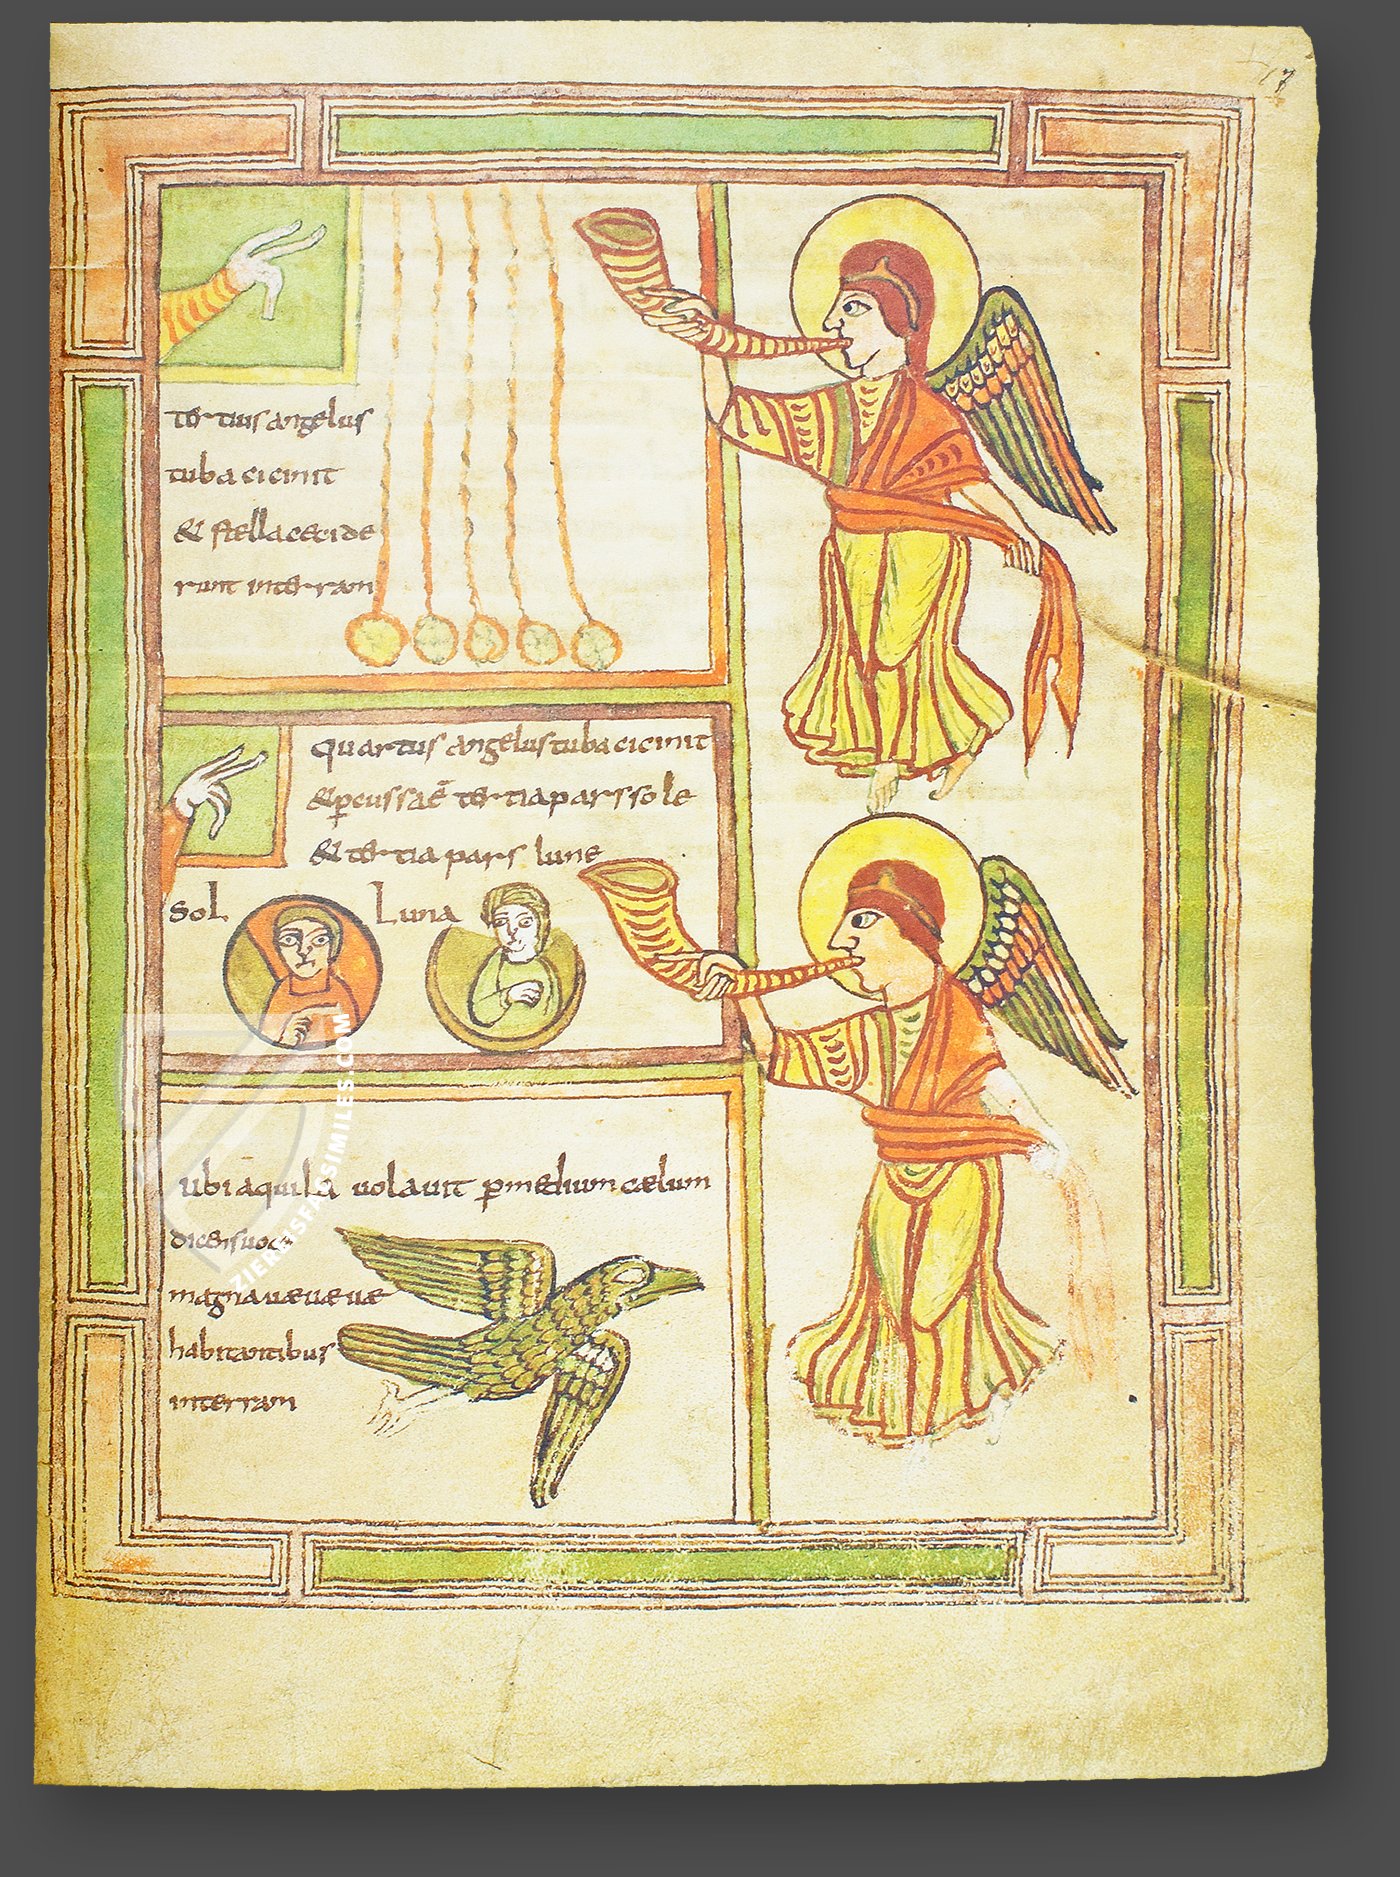 17
tertius angelus
tuba cicinit
& stellacecide
runt interram
quartus angelus tuba cicinit
& pcussaē tertia pars sole
& tertia pars lune
Sol
Luna
ubi aquila volavit p medium cælum
dicens voce
magna væ væ væ
habitantibus
interram
ZIEREISFACSIMILES.COM